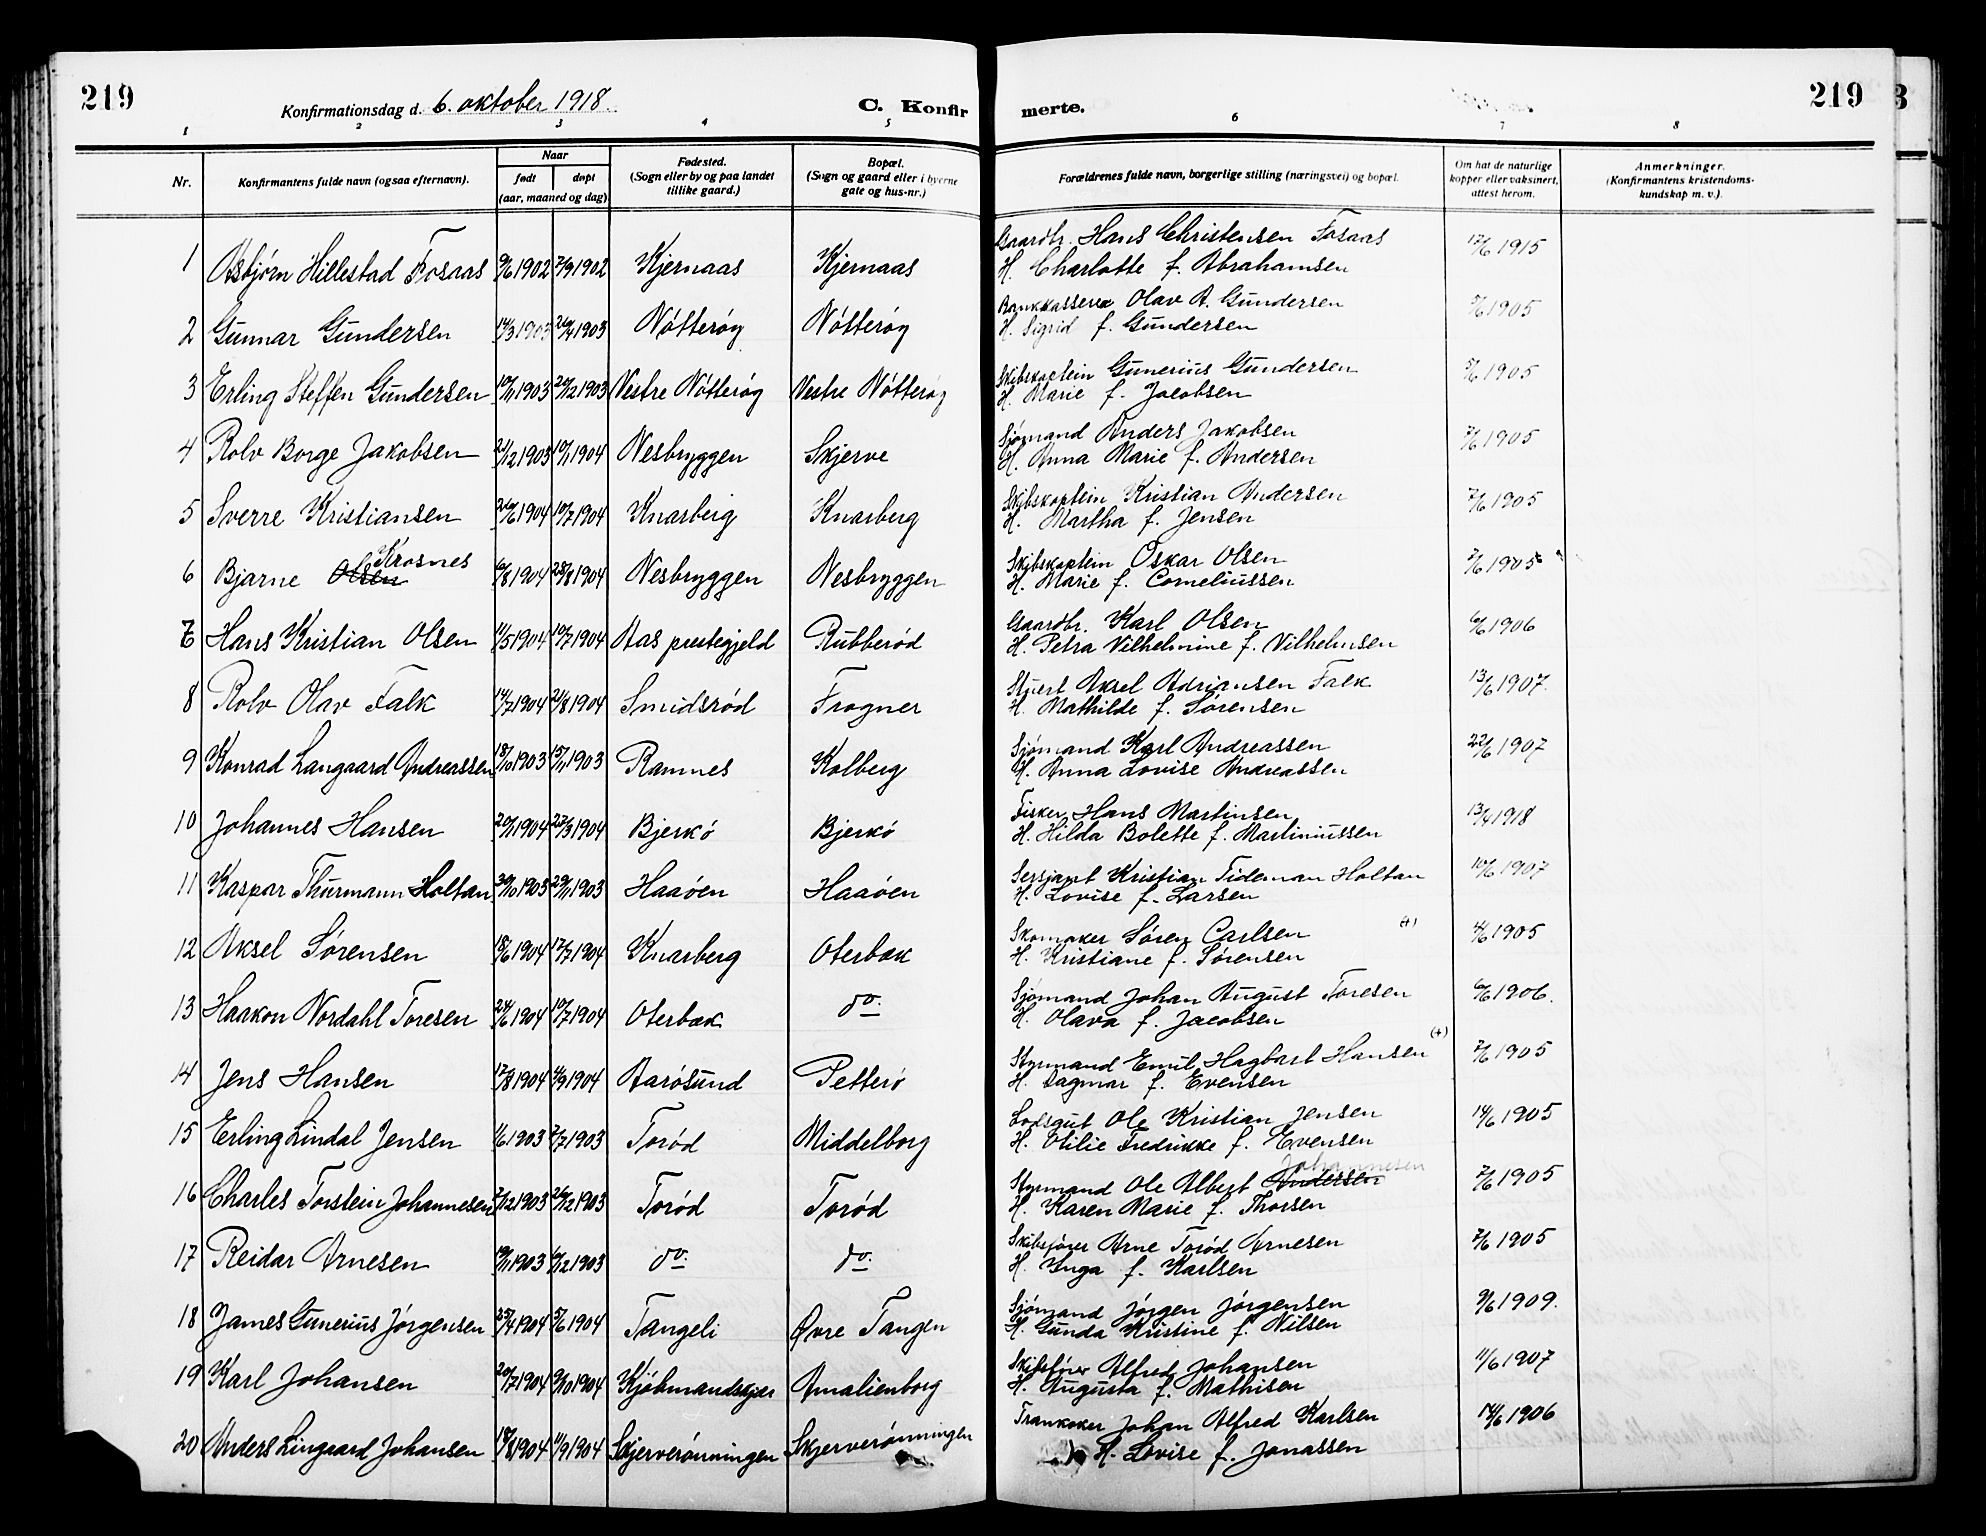 219
Konfirmationsdag d. 6. oktober 1918.
C. Konfir
merte.
219
1 2 3 4 5 6 7 8
Nr.
Konfirmantens fulde navn (ogsaa efternavn).
Naar
født
døpt
(aar, maaned og dag)
Fødested.
(Sogn eller by og paa landet
tillike gaard.)
Bopæl.
(Sogn og gaard eller i byerne
gate og hus-nr.)
Forældrenes fulde navn, borgerlige stilling (næringsvei) og bopæl.
Om hat de naturlige
kopper eller vaksinert,
attest herom.
Anmerkninger.
(Konfirmantens kristendoms-
kundskap m. v.).
1 Asbjørn Hillestad Fosaas 9/6 1902 7/9 1902 Kjernaas Kjernaas
Gaardbr. Hans Christensen Fosaas 17/6 1915
H. Charlotte f. Abrahamsen
2 Gunnar Gundersen 14/3 1903 26/4 1903 Nøtterøy Nøtterøy
Bankkasserer Olav A. Gundersen 5/6 1905
H. Sigrid f. Gundersen
3 Erling Steffen Gundersen 10/11 1903 20/12 1903 Vestre Nøtterøy Vestre Nøtterøy
Skibskaptein Gunerius Gundersen 5/6 1905
H. Marie f. Jacobsen
4 Rolv Borge Jakobsen 21/12 1903 10/1 1904 Nesbryggen Skjerve
Sjømand Anders Jakobsen 7/6 1905
H. Anna Marie f. Andersen
5 Sverre Kristiansen 26/6 1904 10/7 1904 Knarberg Knarberg
Skibskaptein Kristian Andersen 7/6 1905
H. Martha f. Jensen
6 Bjarne Olsen Krosnes 6/8 1904 28/8 1904 Nesbryggen Nesbryggen
Skibskaptein Oskar Olsen 7/6 1905
H. Marie f. Corneliussen
7 Hans Kristian Olsen 11/5 1904 10/7 1904 Aas prestegjeld Rubberød
Gaardbr. Karl Olsen 6/6 1906
H. Petra Vilhelmine f. Vilhelmsen
8 Rolv Olav Falk 14/7 1904 21/8 1904 Smidsrød Frogner
Stuert Aksel Adriansen Falk 13/6 1907.
H. Mathilde f. Sørensen
9 Konrad Langaard Andreassen 18/10 1903 15/11 1903 Ramnes Kolberg
Sjømand Karl Andreassen 22/6 1907
H. Anna Lovise Andreassen
10 Johannes Hansen 20/1 1904 27/3 1904 Bjerkø Bjerkø
Fisker Hans Martinsen 13/4 1918
H. Hilda Bolette f. Martiniussen
11 Kaspar Thurmann Holtan 30/10 1903 29/11 1903 Haaøen Haaøen
Sersjant Kristian Tideman Holtan 10/6 1907
H. Lovise f. Larsen
12 Aksel Sørensen 18/6 1904 17/7 1904 Knarberg Oterbæk
Skomaker Søren Carlsen (+) 4/6 1905
H. Kristiane f. Sørensen
13 Haakon Nordahl Toresen 24/6 1904 10/7 1904 Oterbæk do.
Sjømand Johan August Toresen 6/6 1906.
H. Olava f. Jacobsen
14 Jens Hansen 17/8 1904 4/9 1904 Aarøsund Petterø
Styrmand Emil Hagbart Hansen (+) 7/6 1905
H. Dagmar f. Evensen
15 Erling Lindal Jensen 1/6 1903 7/7 1903 Torød Middelborg
Lodsgut Ole Kristian Jensen 14/6 1905
H. Otilie Fredrikke f. Evensen
16 Charles Torstein Johannesen 7/12 1903 26/12 1903 Torød Torød
Johannesen
Styrmand Ole Albert Andersen 7/6 1905
H. Karen Marie f. Thorsen
17 Reidar Arnesen 19/11 1903 6/12 1903 do. do.
Skibsfører Arne Torød Arnesen 7/6 1905
H. Inga f. Karlsen
18 James Gunerius Jørgensen 25/4 1904 5/6 1904 Tangeli Øvre Tangen
Sjømand Jørgen Jørgensen 9/6 1909.
H. Gunda Kristine f. Nilsen
19 Karl Johansen 20/7 1904 9/10 1904 Kjøbmandskjær Amalienborg
Skibsfører Alfred Johansen 11/6 1907
H. Augusta f. Mathisen
20 Anders Lingaard Johansen 18/8 1904 11/9 1904 Skjerverønningen Skjerverønningen
Trankoker Johan Alfred Karlsen 14/6 1906
H. Lovise f. Jonassen